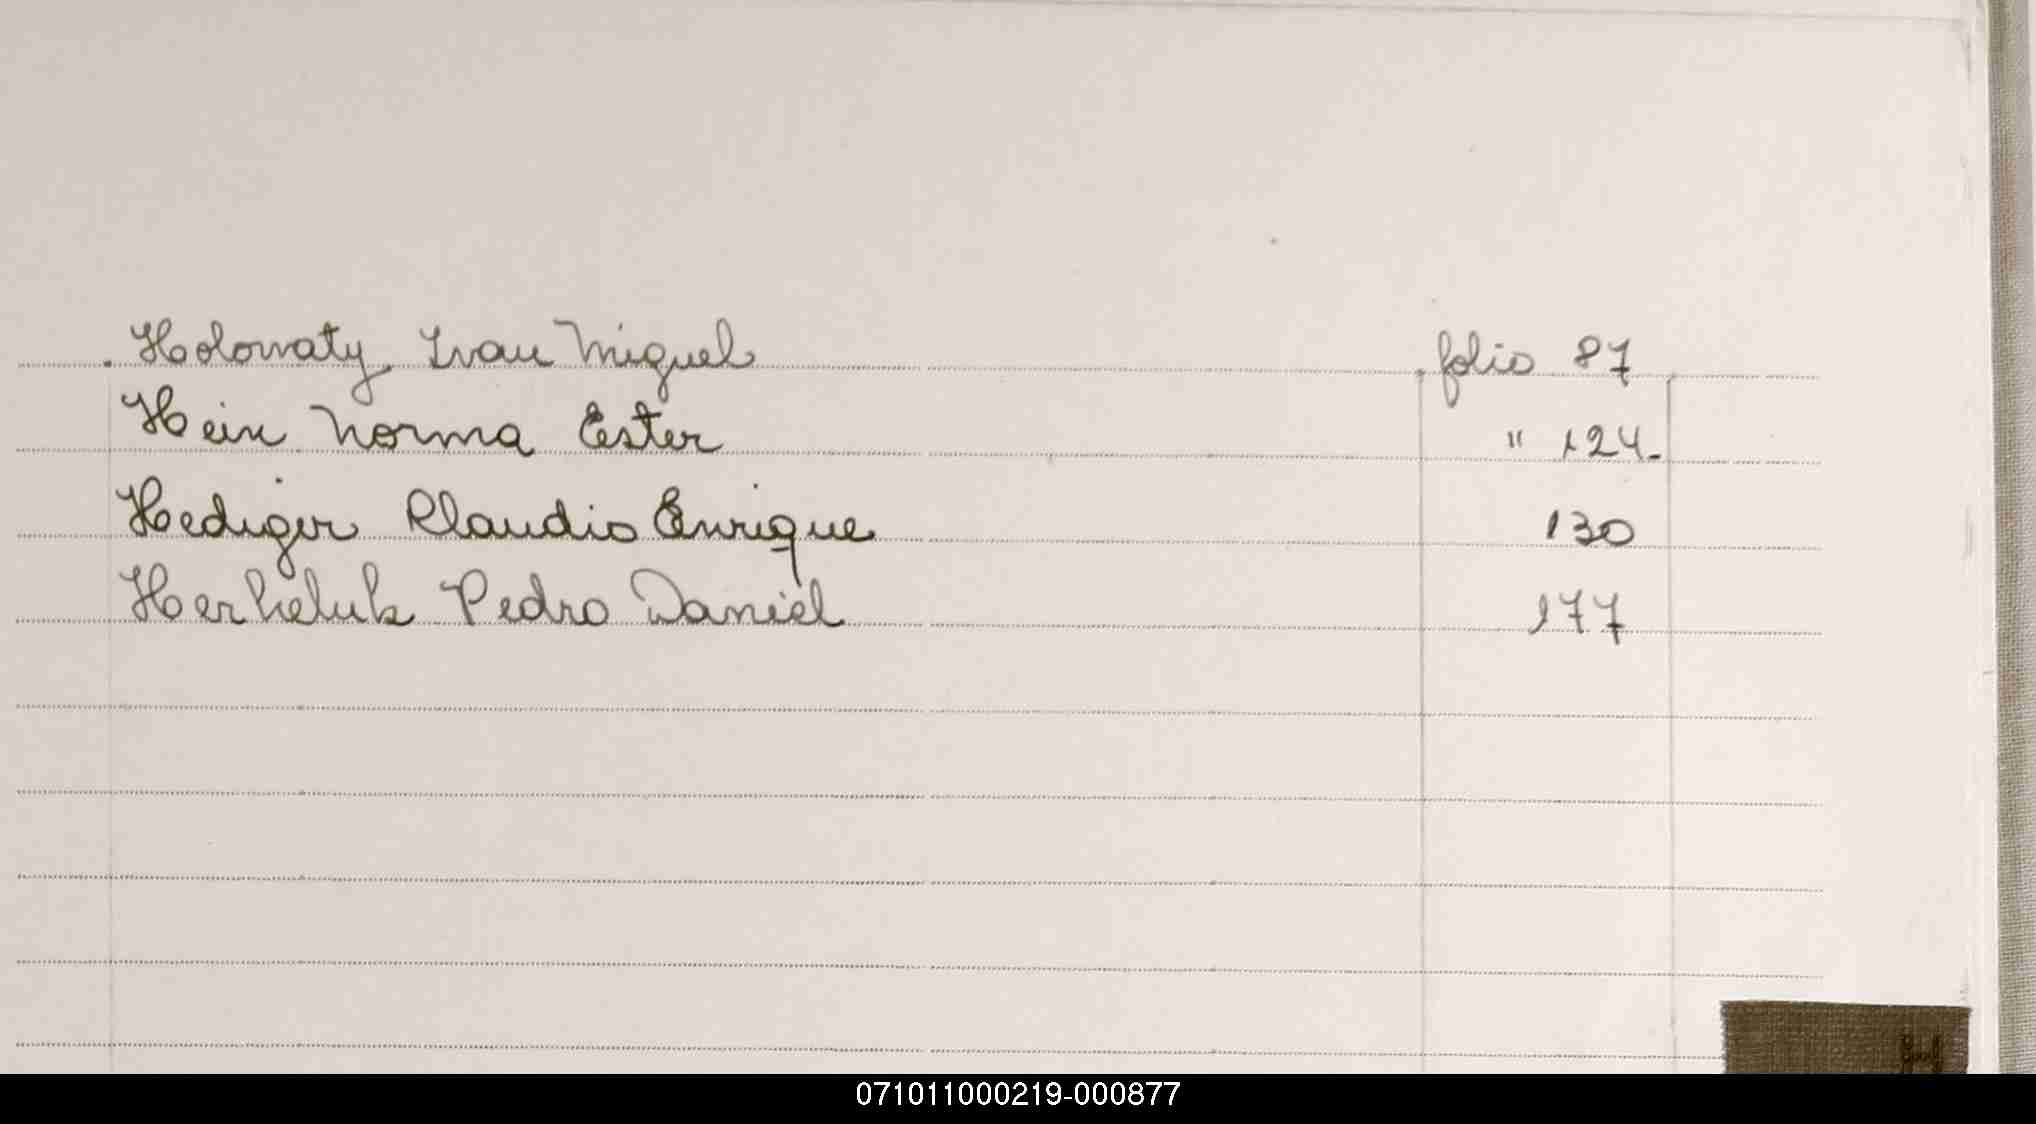 Holowaty, Ivan Miguel folio 87
Hein Norma Ester " 124-
Hediger Claudio Enrique 130
Herheluk Pedro Daniel 177
H
071011000219-000877